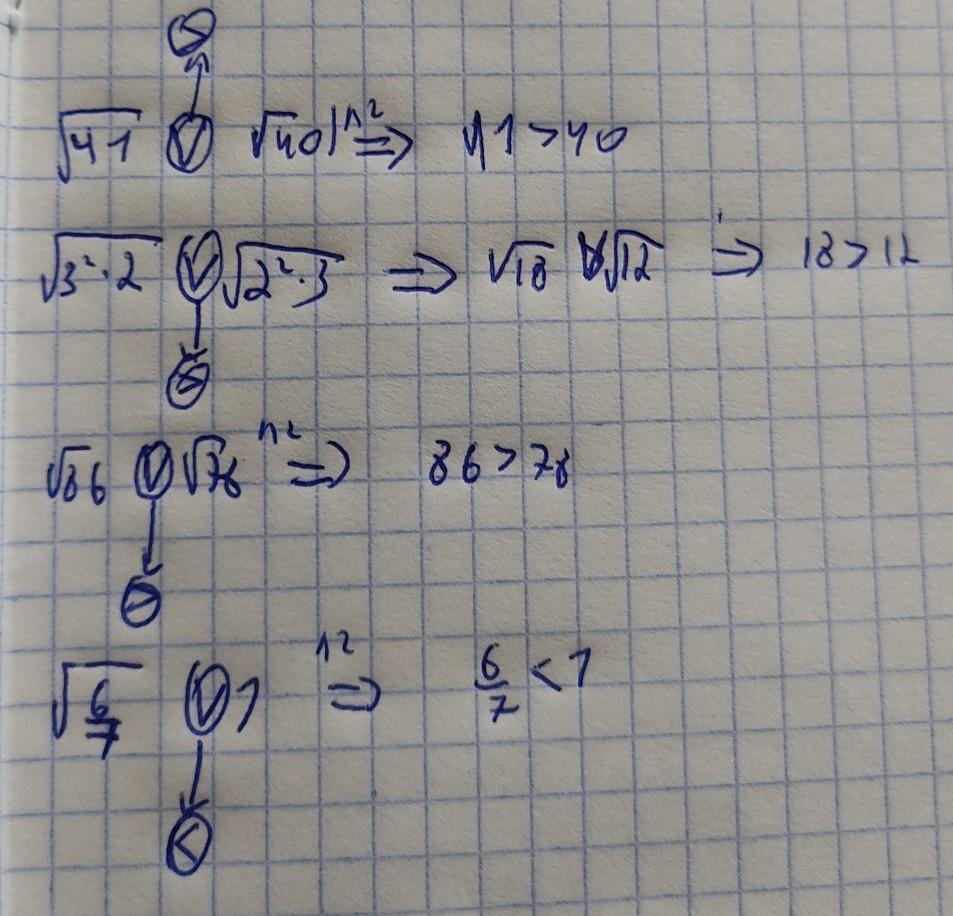 >
√41 V √40 |^2 ⇒ 41 > 40
√3²·2 V √2²·3 ⇒ √18 V √12 ⇒ 18 > 12
>
√86 V √78 ^2 ⇒ 86 > 78
>
√6/7 V 1 ^2 ⇒ 6/7 < 1
<